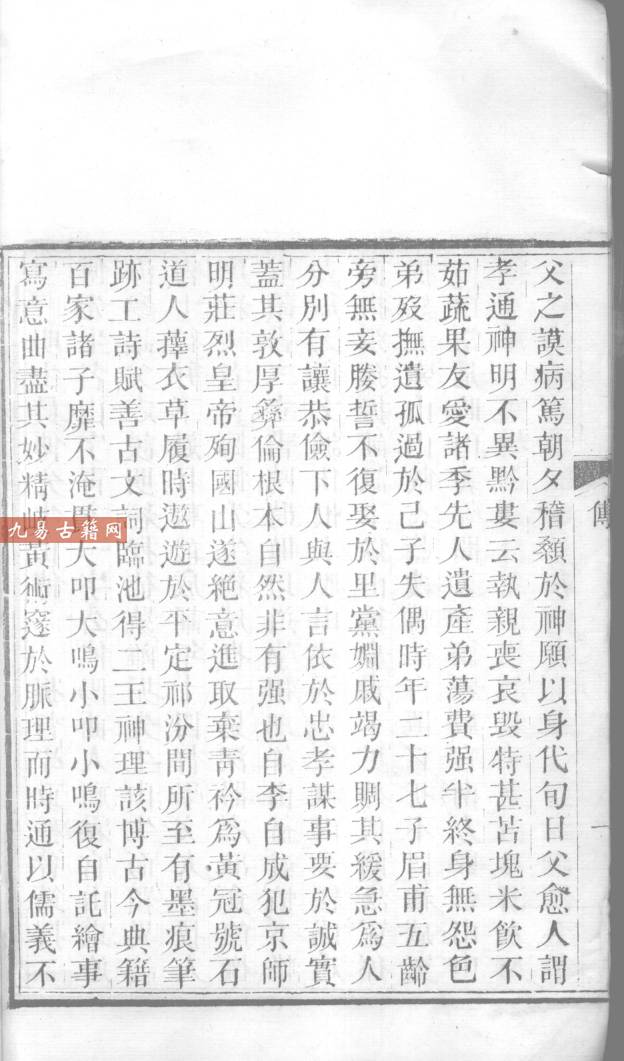 傳
一
父之謨病篤朝夕稽顙於神願以身代旬日父愈人謂
孝通神明不異黔婁云執親喪哀毀特甚苫塊米飲不
茹蔬果友愛諸季先人遺產弟蕩費强半終身無怨色
弟歿撫遺孤過於己子失偶時年二十七子眉甫五齡
旁無妾媵誓不復娶於里黨姻戚竭力賙其緩急為人
分別有讓恭儉下人與人言依於忠孝謀事要於誠實
蓋其敦厚彞倫根本自然非有强也自李自成犯京師
明莊烈皇帝殉國山遂絕意進取棄靑衿為黃冠號石
道人蘀衣草履時遨遊於平定祁汾間所至有墨痕筆
跡工詩賦善古文詞臨池得二王神理該博古今典籍
百家諸子靡不淹貫大叩大鳴小叩小鳴復自託繪事
寫意曲盡其妙精岐黃術邃於脈理而時通以儒義不
九易古籍网